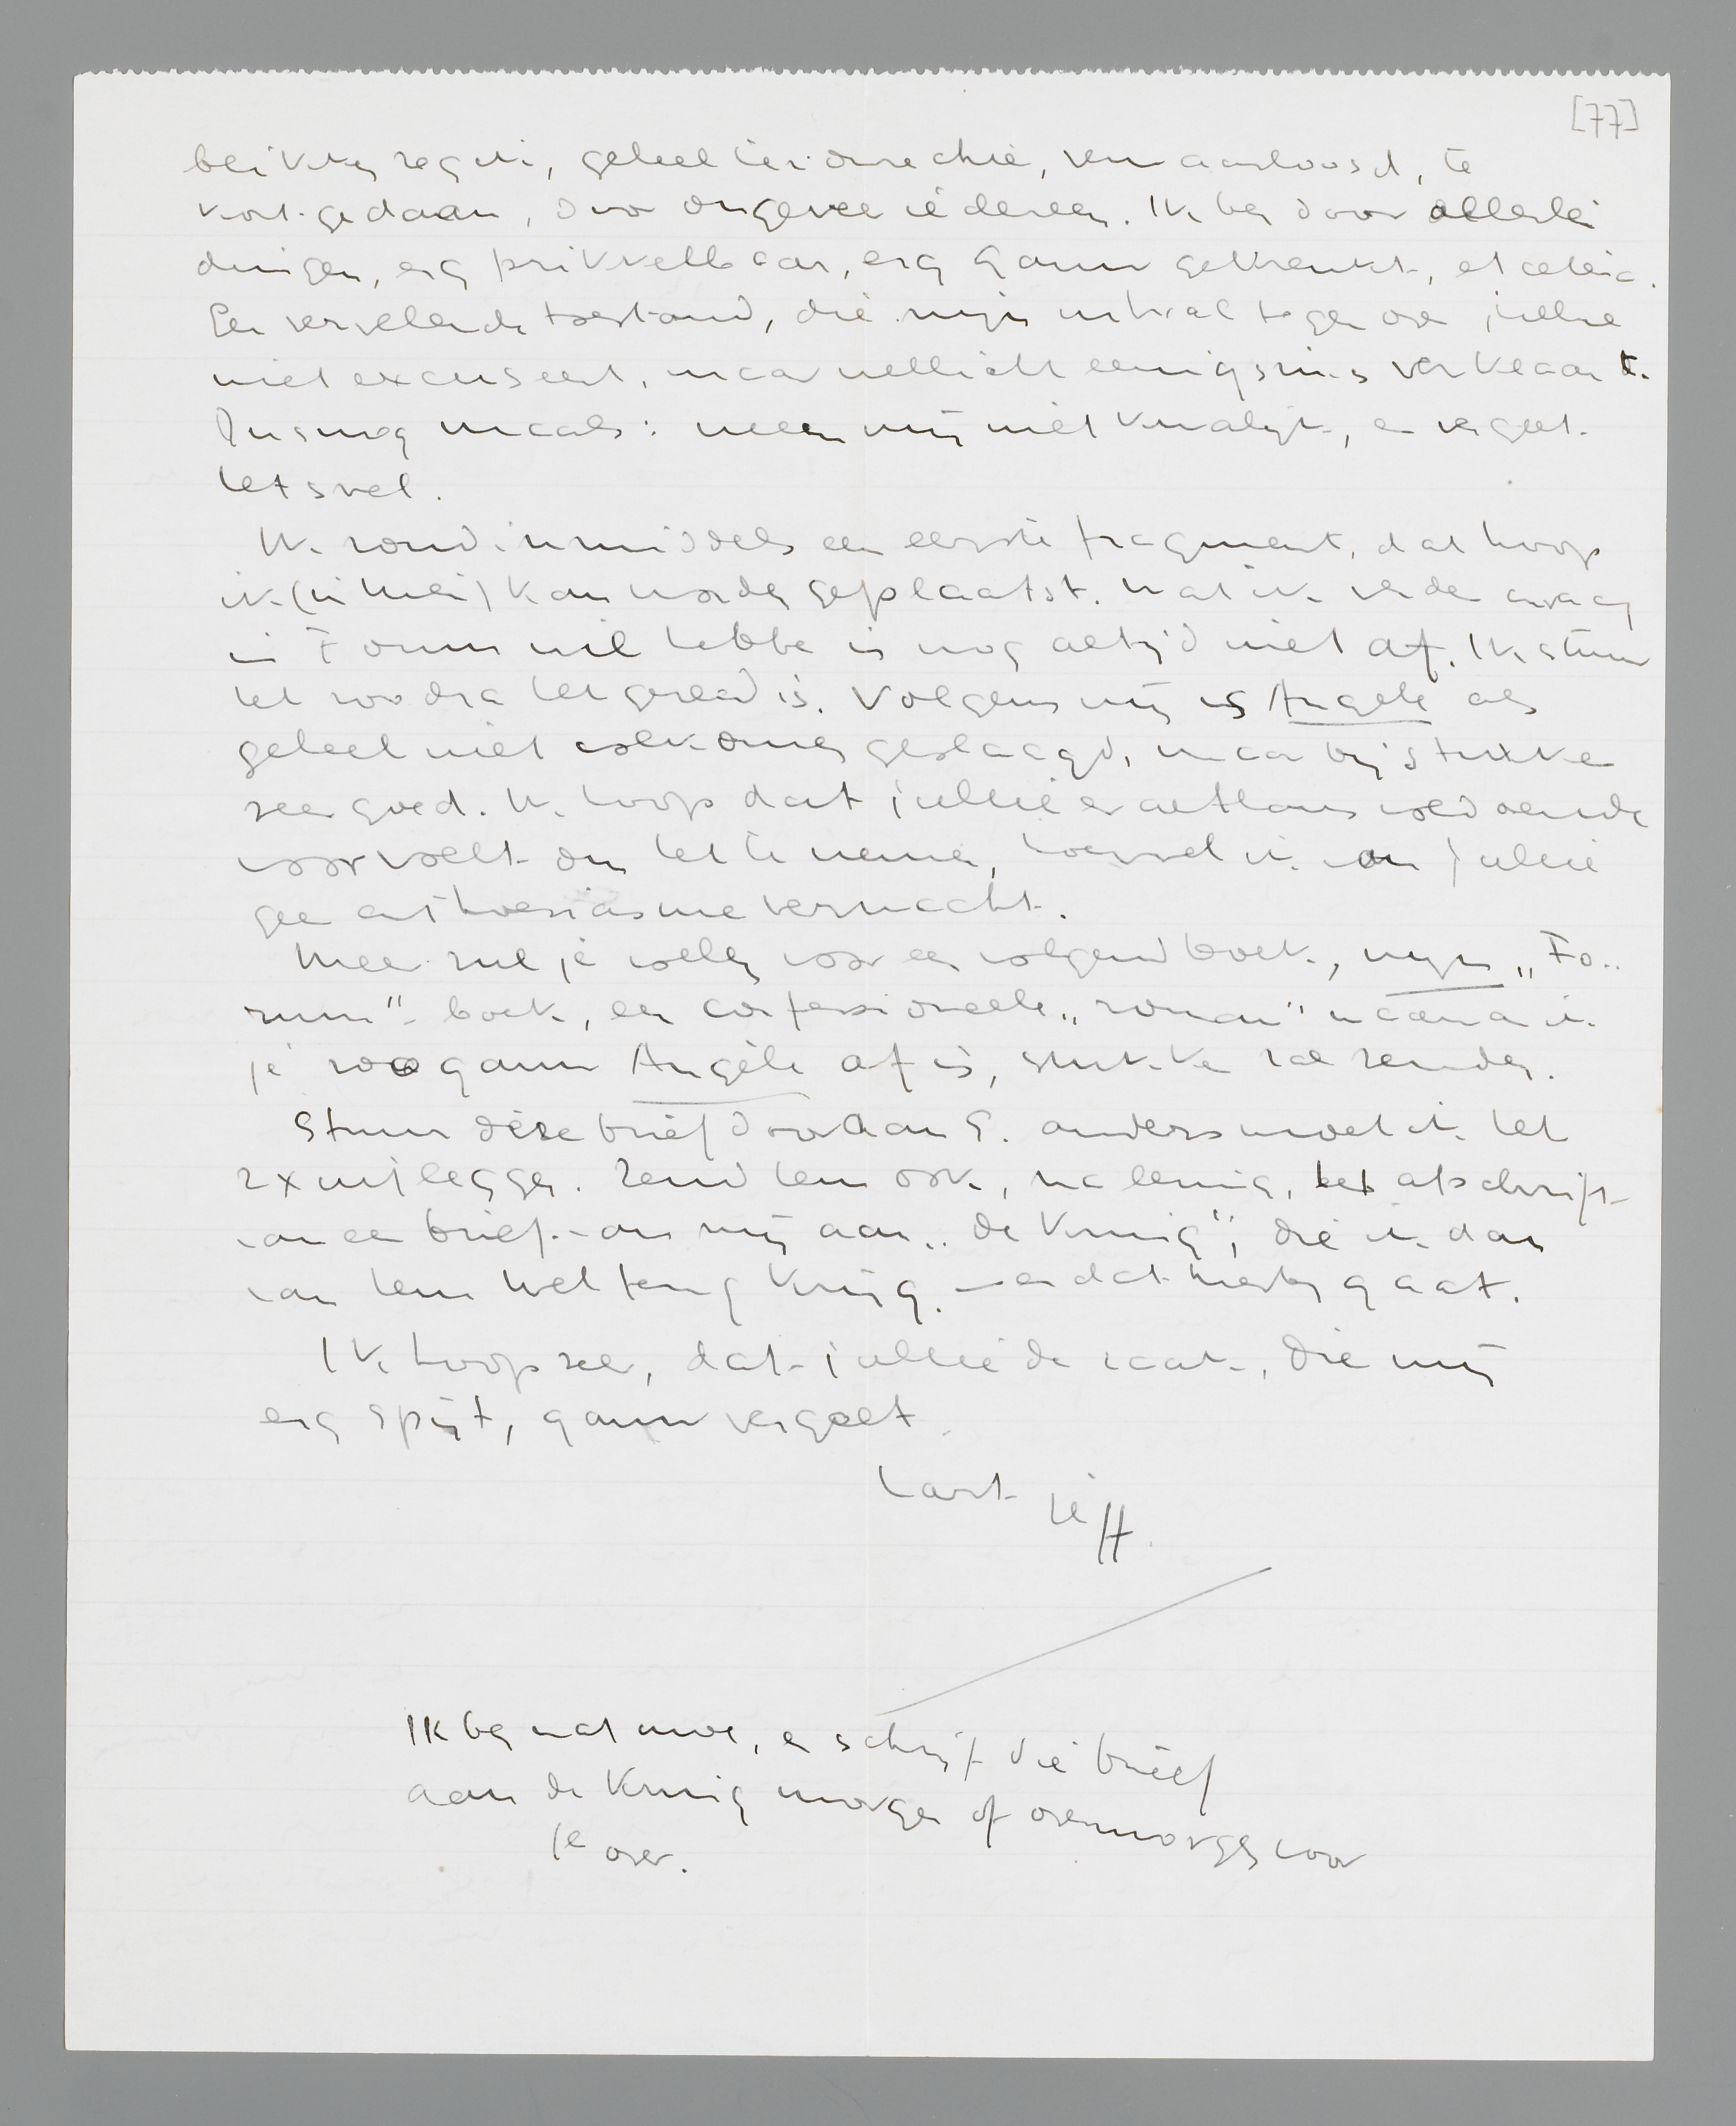 [77]
geheel ten onrechte, verwaarloosd, te
kort gedaan, door ongeveer iedereen. Ik ben door allerlei
dingen, erg prikkelbaar, erg gauw gekrenkt, et cetera.
Een vervelende toestand, die mijn uitval tegenover jullie
niet excuseert, maar wellicht eenigszins verklaart.
Dus nog maals: neem mij niet kwalijk, en vergeet
het snel.
Ik zond inmiddels een eerste fragment, dat hoop
ik (in Mei) kan worden geplaatst. Wat ik verder graag
in Forum wil hebben is nog altijd niet af. Ik stuur
het zoodra het gereed is. Volgens mij is Angèle als
geheel niet volkomen geslaagd, maar bij stukken
zeer goed. Ik hoop dat jullie er althans voldoende
voor voelt om het te nemen, hoewel ik van jullie
geen enthousiasme verwacht.
Meer zul je voelen voor een volgend boek, mijn „Fo-
rum"-boek, een confessioneele „roman" waarvan ik
je zoo gauw Angèle af is, stukken zal zenden.
Stuur deze brief door aan G. anders moet ik het
2x uitleggen. Zend hem ook, na lezing, het afschrift
van een brief van mij aan „de Kring", die ik dan
van hem wel terug krijg. en dat hierbij gaat.
Ik hoop zeer, dat jullie de zaak, die mij
erg spijt, gauw vergeet.
hart. je H.
Ik ben wat moe, en schrijf die brief
aan de Kring morgen of overmorgen voor
je over.